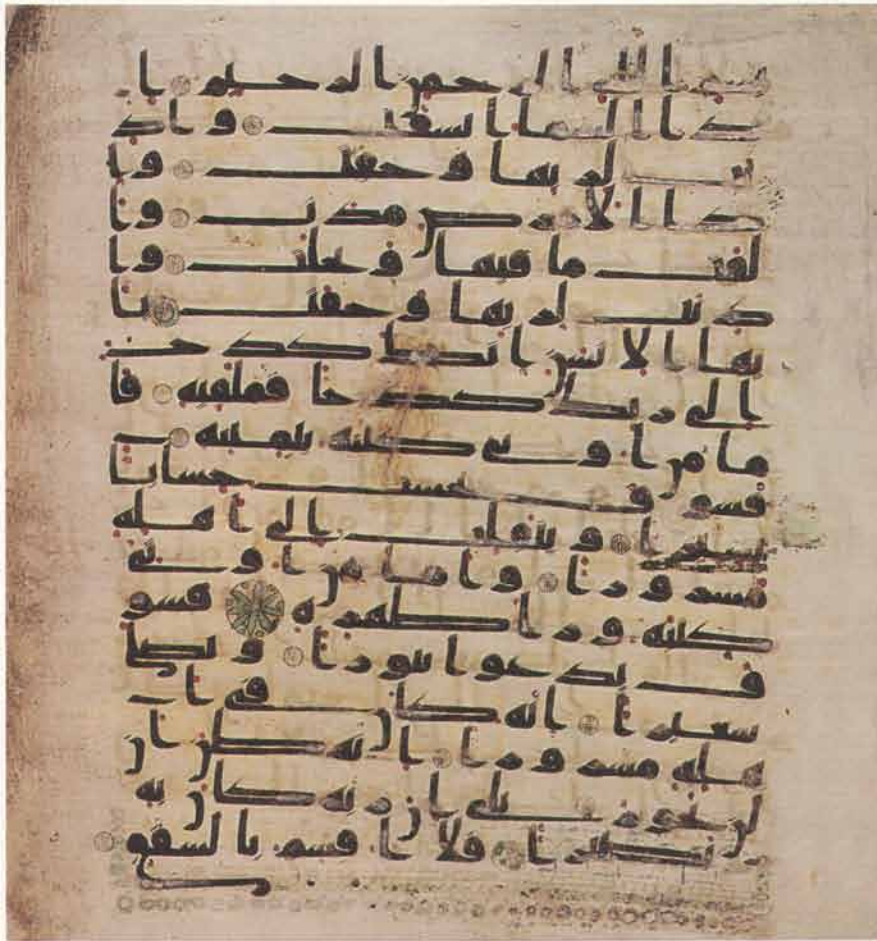 بسم الله الرحمن الرحيم ا
ذا السما انشقت واذ
نت لربها وحقت وا
ذا الارض مدت وا
لقت ما فيها وتخلت وا
ذنت لربها وحقت يا
يها الانسن انك كادح
الى ربك كدحا فملقيه فا
ما من اوتي كتبه بيمينه
فسوف يحسب حسابا
يسيرا وينقلب الى اهله
مسرورا واما من اوتي
كتبه ورا ظهره فسو
ف يدعوا ثبورا ويصلى
سعيرا انه كان في ا
هله مسرورا انه ظن ان
لن يحور بلى ان ربه كان به
بصيرا فلا اقسم بالشفق